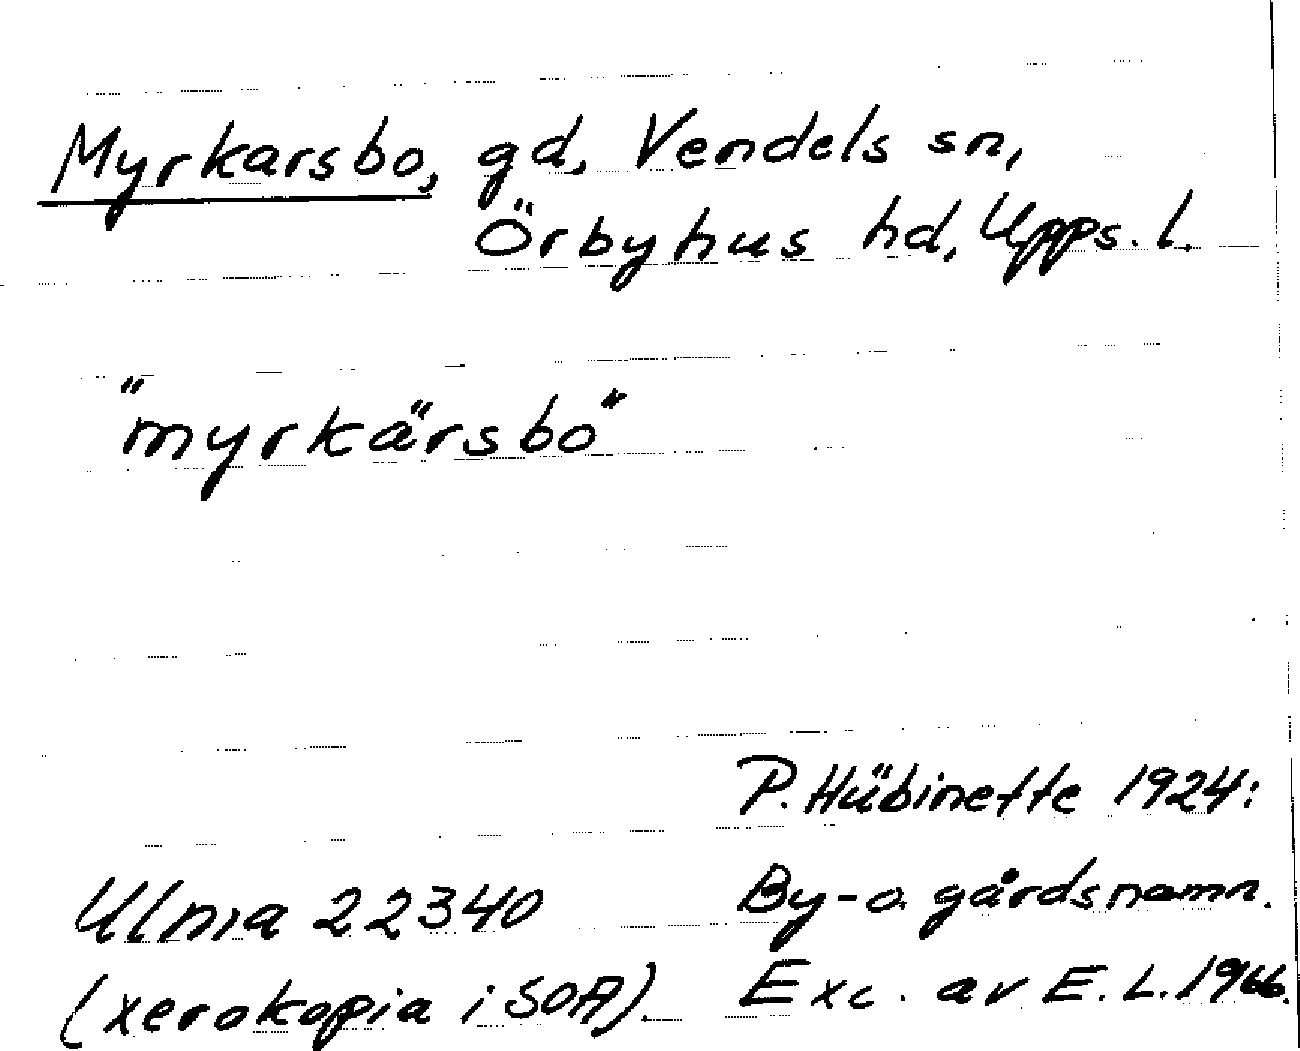 Myrkarsbo, gd, Vendels sn,
Örbyhus hd, Upps. l.
"myrkärsbo"
P. Hübinette 1924:
Ulma 22340 By- o. gårdsnamn.
(xerokopia i SOA) Exc. av E. L. 1966.